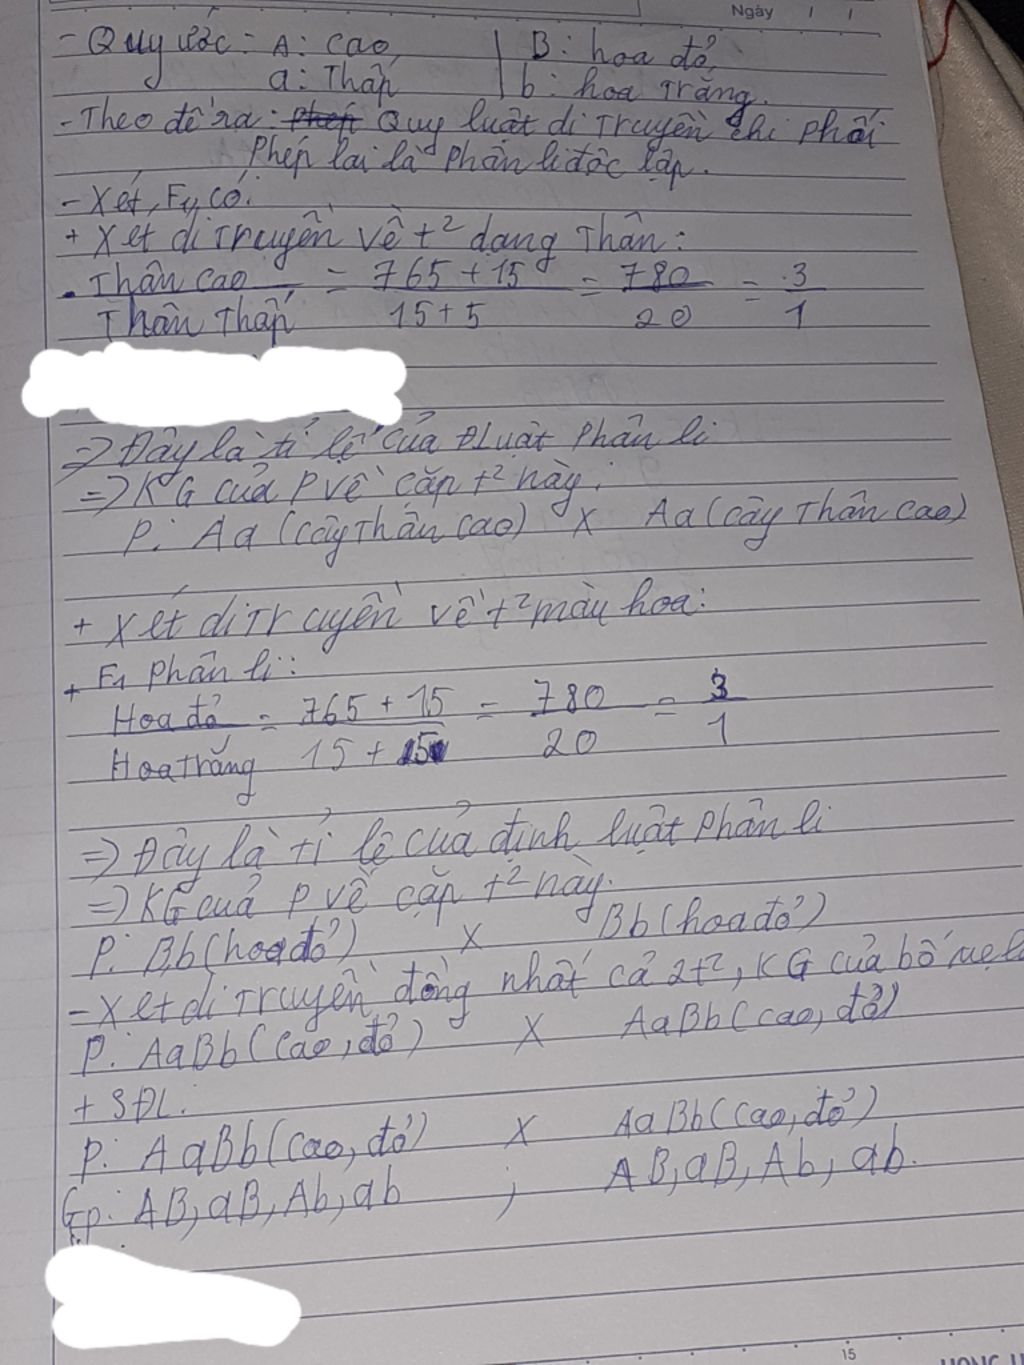 Ngày / /
- Quy ước: A: cao | B: hoa đỏ
a: Thấp | b: hoa Trắng.
- Theo đề ra: Quy luật di Truyền chi phối
Phép lai là Phân li độc lập.
- Xét, F1, có:
+ Xét di Truyền về t² dạng Thân:
. Thân cao / Thân Thấp = 765 + 15 / 15 + 5 = 780 / 20 = 3 / 1
=> Đây là tỉ lệ của ĐLuật Phân li
=> KG của P về cặp t² này:
P: Aa (cây Thân cao) x Aa (cây Thân cao)
+ Xét di Truyền về t² màu hoa:
+ F1 Phân li:
Hoa đỏ / Hoa Trắng = 765 + 15 / 15 + 5 = 780 / 20 = 3 / 1
=> Đây là tỉ lệ của định luật Phân li
=> KG của P về cặp t² này.
P: Bb (hoa đỏ) x Bb (hoa đỏ)
- Xét di Truyền đồng nhất cả 2t², KG của bố mẹ
P: AaBb (cao, đỏ) x AaBb (cao, đỏ)
+ SĐL.
P: AaBb (cao, đỏ) x AaBb (cao, đỏ)
Gp: AB, aB, Ab, ab ; AB, aB, Ab, ab.
15